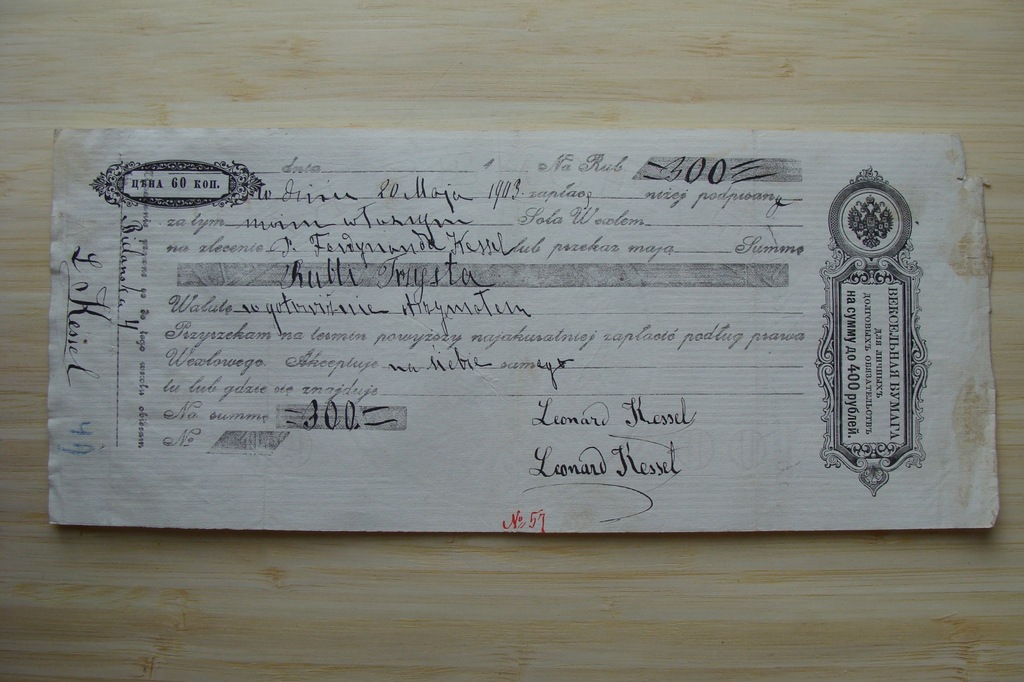 ЦѢНА 60 КОП.
dnia 1 Na Rub =300=
w dniu 20 Maja 1903 zapłacę niżej podpisany
za tym moim własnym Sola Wexlem
na zlecenie P. Ferdynanda Kessel lub przekaz moja Summę
Rubli Trzysta
Walutę w gotowiźnie otrzymałem
Przyrzekam na termin powyższy najakuratniej zapłacić podług prawa
Wexlowego. Akceptuję na siebie samego
tu lub gdzie się znajduję
Na summę =300.=
No
Leonard Kessel
Leonard Kessel
№ 57
L Kessel
Bielańska 4
49
ВЕКСЕЛЬНАЯ БУМАГА
для личныхъ
долговыхъ обязательствъ
на сумму до 400 рублей.